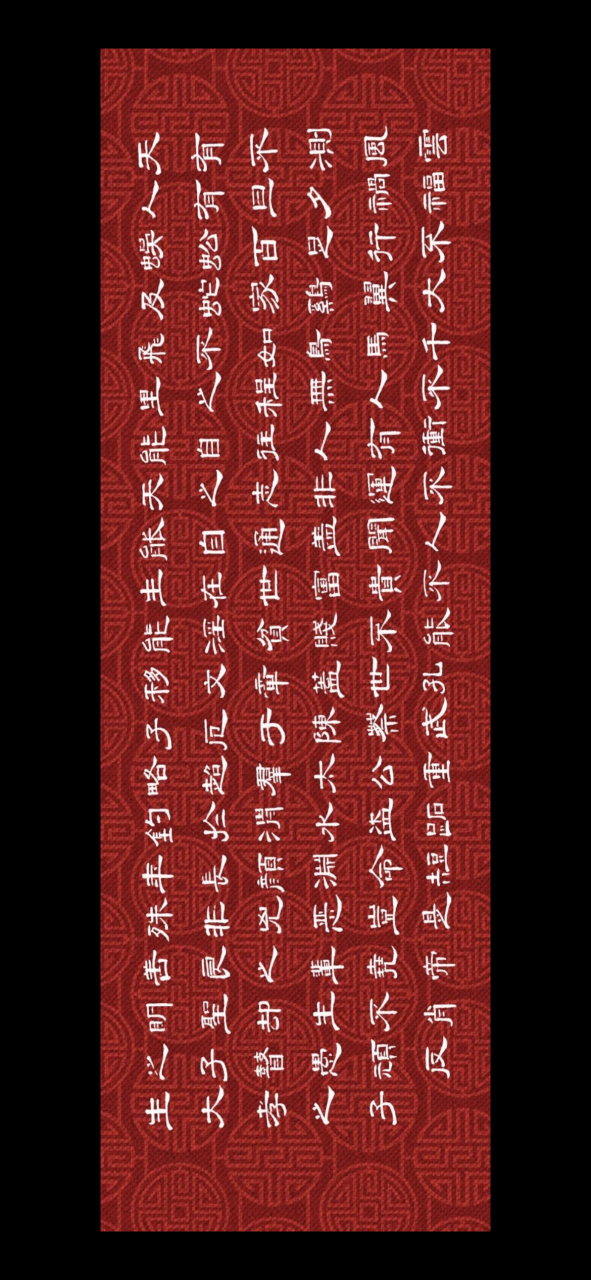 天有不測風雲
人有旦夕禍福
蜈蚣百足行不
及蛇家鷄翼大
飛不如鳥馬千
里之程無人不
能自往人有衝
天之志非運不
能自通蓋聞人
生在世富貴不
能淫貧賤不能
移文章蓋世孔
子厄于陳蔡武
略超羣太公垂
釣於渭水盜跖
年長顏淵命短
殊非兇惡豈是
善良之輩堯帝
明聖却生不肖
之子瞽愚頑反
生大孝之子